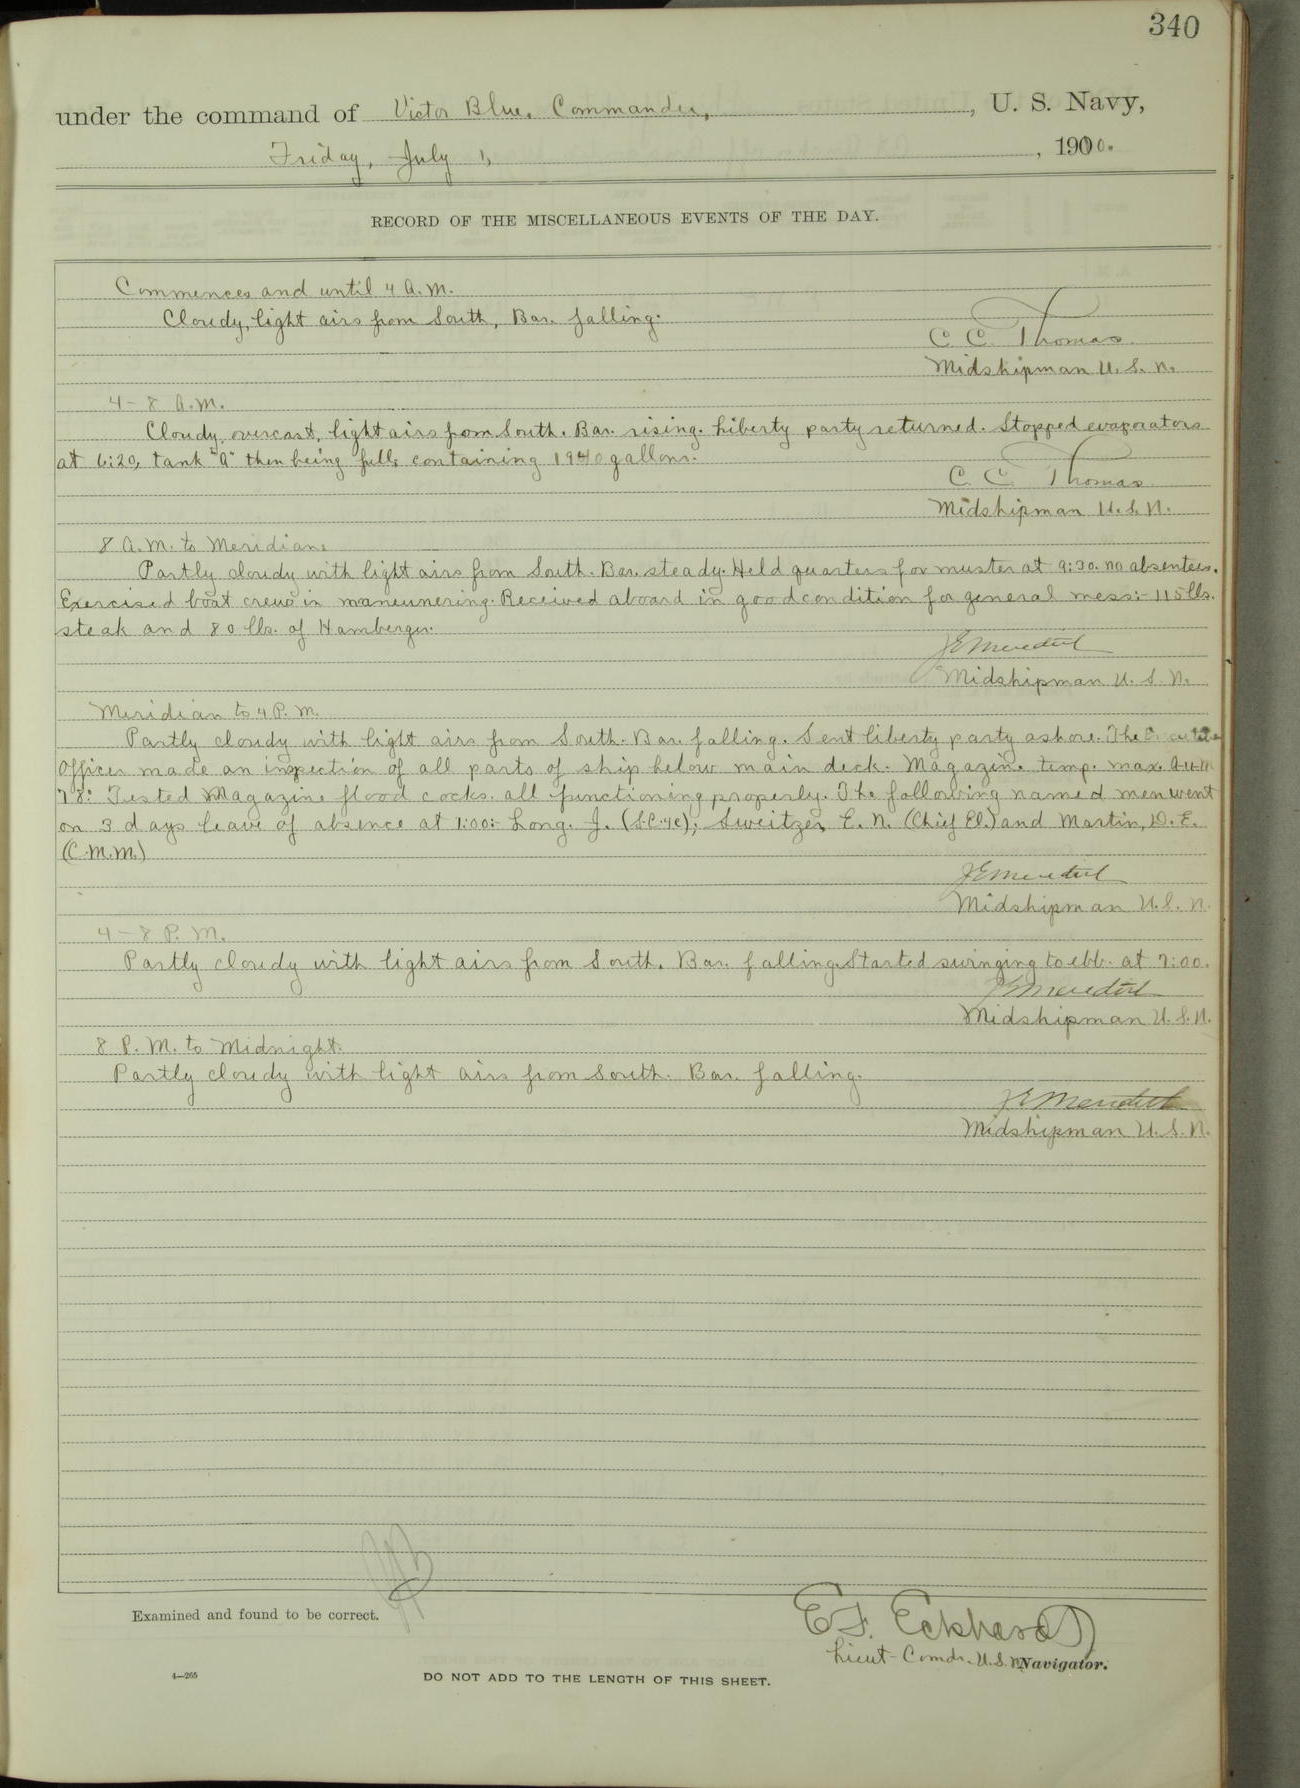 340
under the command of Victor Blue, Commander, , U. S. Navy,
Friday, July 1, , 1910.
RECORD OF THE MISCELLANEOUS EVENTS OF THE DAY.
Commences and until 4 A.M.
Cloudy, light airs from South, Bar. falling.
C. C. Thomas
Midshipman U. S. N.
4 - 8 A.M.
Cloudy, overcast, light airs from South. Bar. rising. Liberty party returned. Stopped evaporators
at 6:20, tank "A" then being full, containing 1940 gallons.
C. C. Thomas
Midshipman U. S. N.
8 A.M. to Meridian.
Partly cloudy with light airs from South. Bar. steady. Held quarters for muster at 9:30. no absentees.
Exercised boat crews in maneunering. Received aboard in good condition for general mess:- 115 lbs.
steak and 80 lbs. of Hamberger.
J E Meredith
Midshipman U. S. N.
Meridian to 4 P.M.
Partly cloudy with light airs from South. Bar. falling. Sent liberty party ashore. The Executive
Officer made an inspection of all parts of ship below main deck. Magazine temp. max. A-4-M
78°. Tested Magazine flood cocks. all functioning properly. The following named men went
on 3 days leave of absence at 1:00:- Long. J. (S.C.4c); Sweitzer, E. N. (Chief El.) and Martin, D. E.
(C.M.M.)
J E Meredith
Midshipman U. S. N.
4 - 8 P. M.
Partly cloudy with light airs from South. Bar. falling. Started swinging to ebb. at 7:00.
J E Meredith
Midshipman U. S. N.
8 P. M. to Midnight.
Partly cloudy with light airs from South. Bar. falling.
J E Meredith
Midshipman U. S. N.
Examined and found to be correct.
E. F. Eckhardt
Lieut-Comdr. U.S.N. Navigator.
4—265
DO NOT ADD TO THE LENGTH OF THIS SHEET.